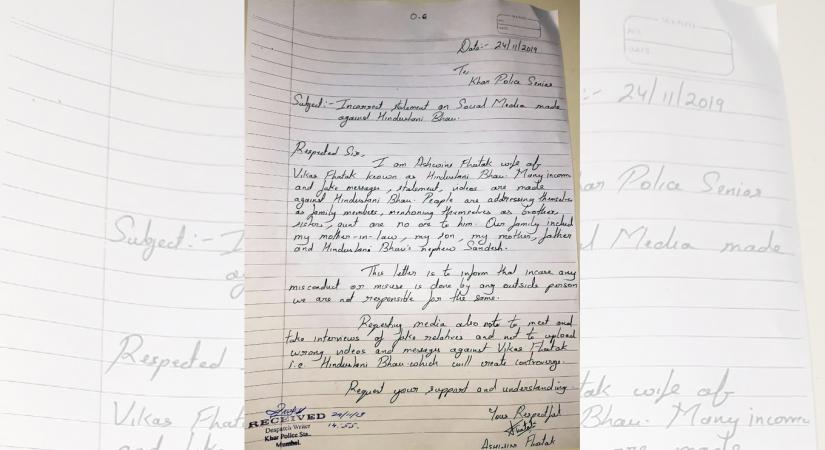 0.6
Date:- 24/11/2019
To
Khar Police Senior
Subject:- Incorrect statement on Social Media made
against Hindustani Bhau.
Respected Sir,
I am Ashwini Fhatak wife of
Vikas Fhatak known as Hindustani Bhau. Many incorre
and fake messages, statement, videos are made
against Hindustani Bhau. People are addressing themselves
as family members, mentioning themselves as brother,
sisters, aunt are no one to him. Our family includ
my mother-in-law, my son, my mother, father
and Hindustani Bhau's nephew Sandesh.
This letter is to inform that incase any
misconduct or misuse is done by any outside person
we are not responsible for the same.
Requesting media also note to meet and
take interviews of fake relatives and not to upload
wrong videos and messages against Vikas Fhatak
i.e Hindustani Bhau which will create controversy.
Request your support and understanding
Your Respectful
Ashwini Fhatak
RECEIVED 24/11/19
Despatch Writer 14.55.
Khar Police Stn.
Mumbai.